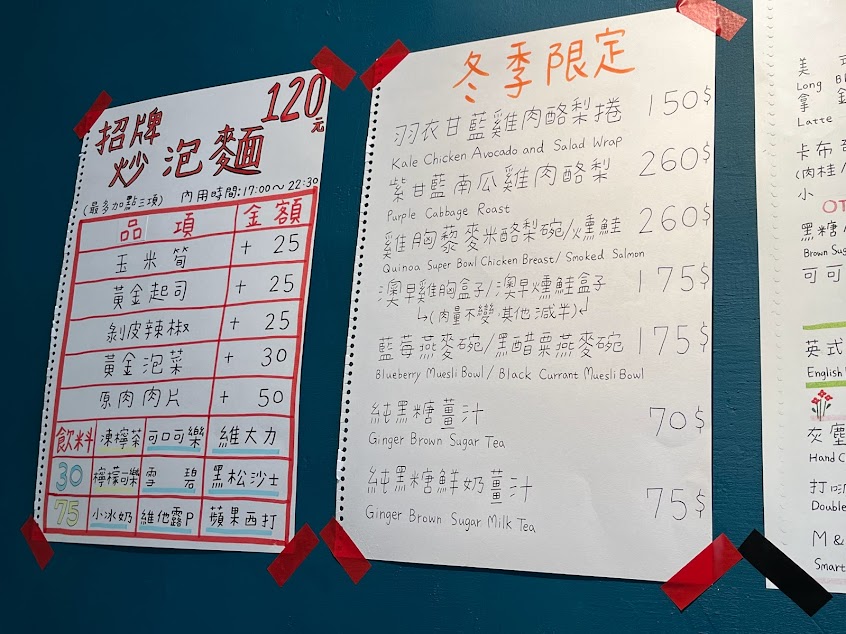 招牌
炒泡麵
120元
(最多加點三項) 內用時間:17:00~22:30
品項 金額
玉米筍 + 25
黃金起司 + 25
剝皮辣椒 + 25
黃金泡菜 + 30
原肉肉片 + 50
飲料 凍檸茶 可口可樂 維大力
30 檸檬可樂 雪碧 黑松沙士
75 小冰奶 維他露P 蘋果西打
冬季限定
羽衣甘藍雞肉酪梨捲 150$
Kale Chicken Avocado and Salad Wrap
紫甘藍南瓜雞肉酪梨 260$
Purple Cabbage Roast
雞胸藜麥米酪梨碗/燻鮭 260$
Quinoa Super Bowl Chicken Breast/Smoked Salmon
澳早雞胸盒子/澳早燻鮭盒子 175$
(肉量不變.其他減半)
藍莓燕麥碗/黑醋粟燕麥碗 175$
Blueberry Muesli Bowl/Black Currant Muesli Bowl
純黑糖薑汁 70$
Ginger Brown Sugar Tea
純黑糖鮮奶薑汁 75$
Ginger Brown Sugar Milk Tea
美
Long Bl
拿
Latte
卡布
(肉桂/
小
OT
黑糖
Brown Sug
可可
英式
English
灰塵
Hand C
打
Double
M &
Smart